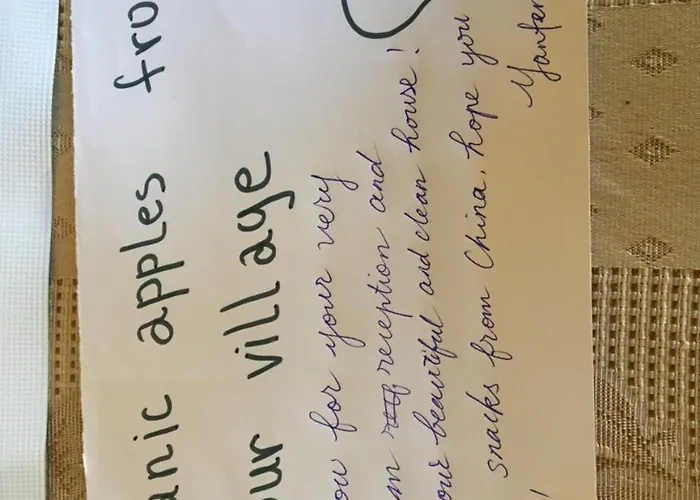 anic apples fro
our village
ou for your very
m reception and
our beautiful and clean house!
snacks from China, hope you
Yanfen